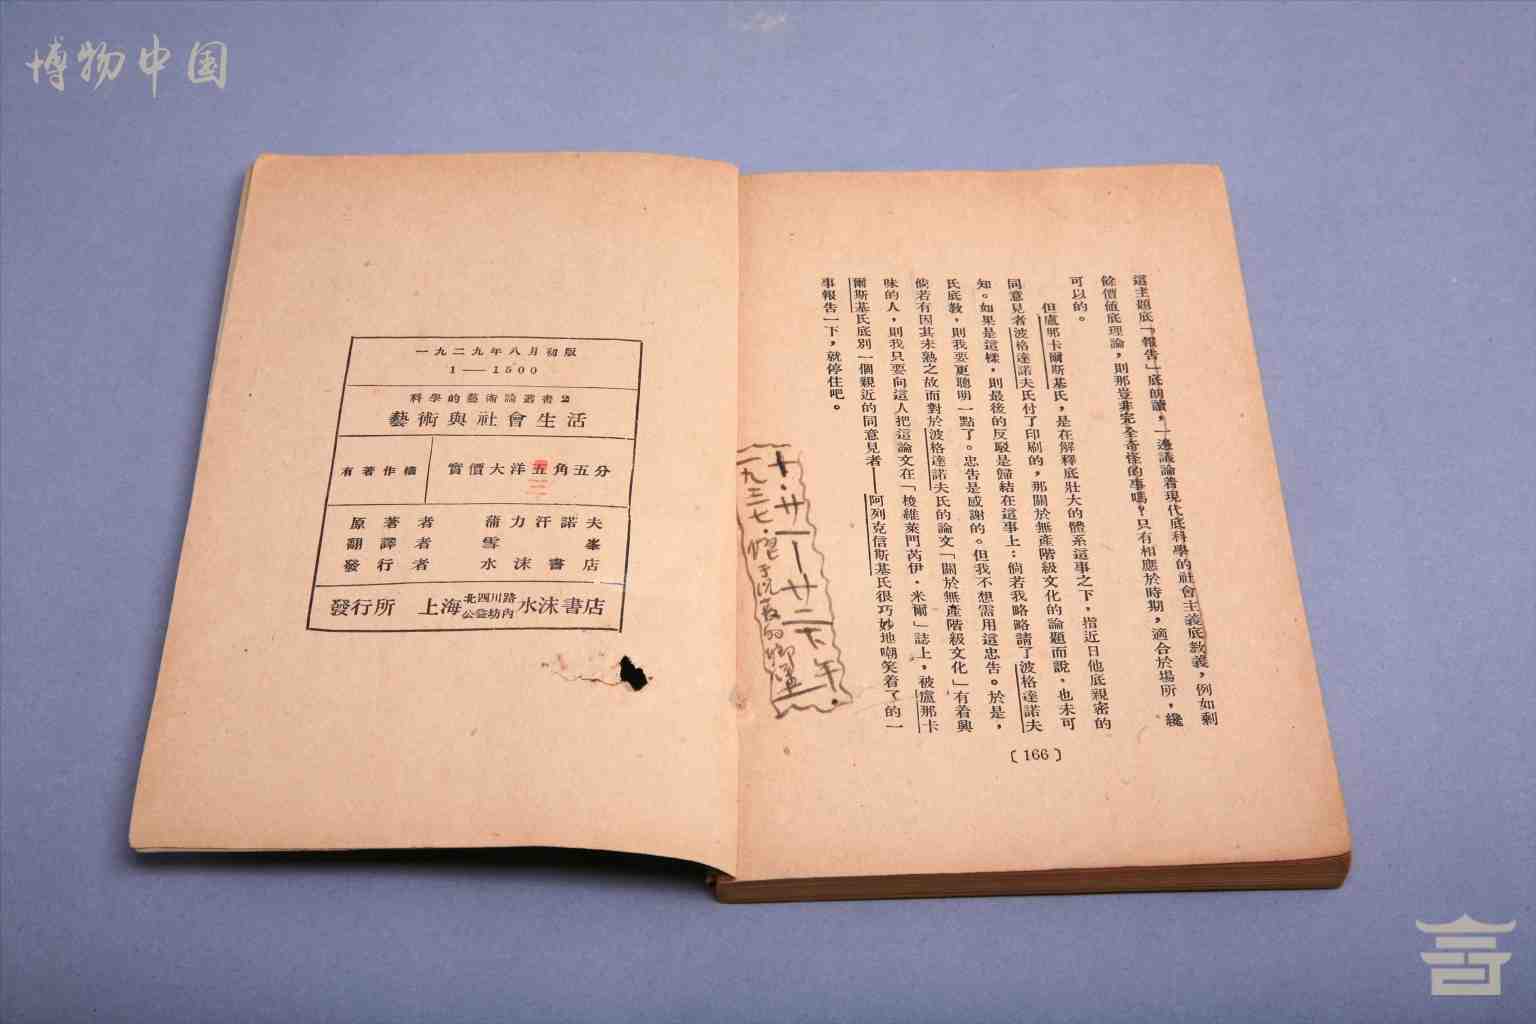 博物中国
這主題底「報告」底朗讀，一邊議論着現代底科學的社會主義底教義，例如剩
餘價値底理論，則那豈非完全奇怪的事嗎？只有相應於時期，適合於場所，纔
可以的。
但盧那卡爾斯基氏，是在解釋底壯大的體系這事之下，指近日他底親密的
同意見者波格達諾夫氏付了印刷的，那關於無產階級文化的論題而說，也未可
知。如果是這樣，則最後的反駁是歸結在這事上：倘若我略略請了波格達諾夫
氏底教，則我要更聰明一點了。忠告是感謝的。但我不想需用這忠告。於是，
倘若有因其未熟之故而對於波格達諾夫氏的論文「關於無產階級文化」有着興
味的人，則我只要向這人把這論文在「梭維萊門芮伊·米爾」誌上，被盧那卡
爾斯基氏底別一個親近的同意見者——阿列克信斯基氏很巧妙地嘲笑着了的一
事報告一下，就停住吧。
十·廿一—廿二下午·
一九三七·
〔166〕
一九二九年八月初版
1—1500
科學的藝術論叢書2
藝術與社會生活
有著作權
實價大洋五角五分
三
原著者 蒲力汗諾夫
翻譯者 雪峯
發行者 水沫書店
發行所 上海北四川路公益坊內水沫書店